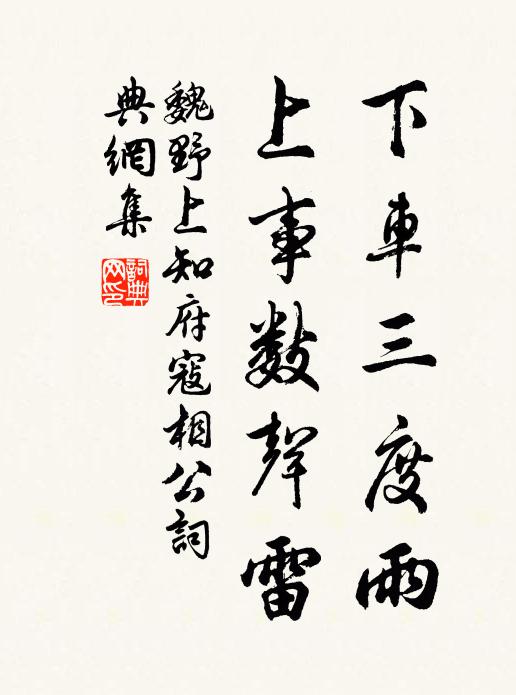 下車三度雨
上事數聲雷
魏野上知府寇相公詞
典網集
詞典
网印